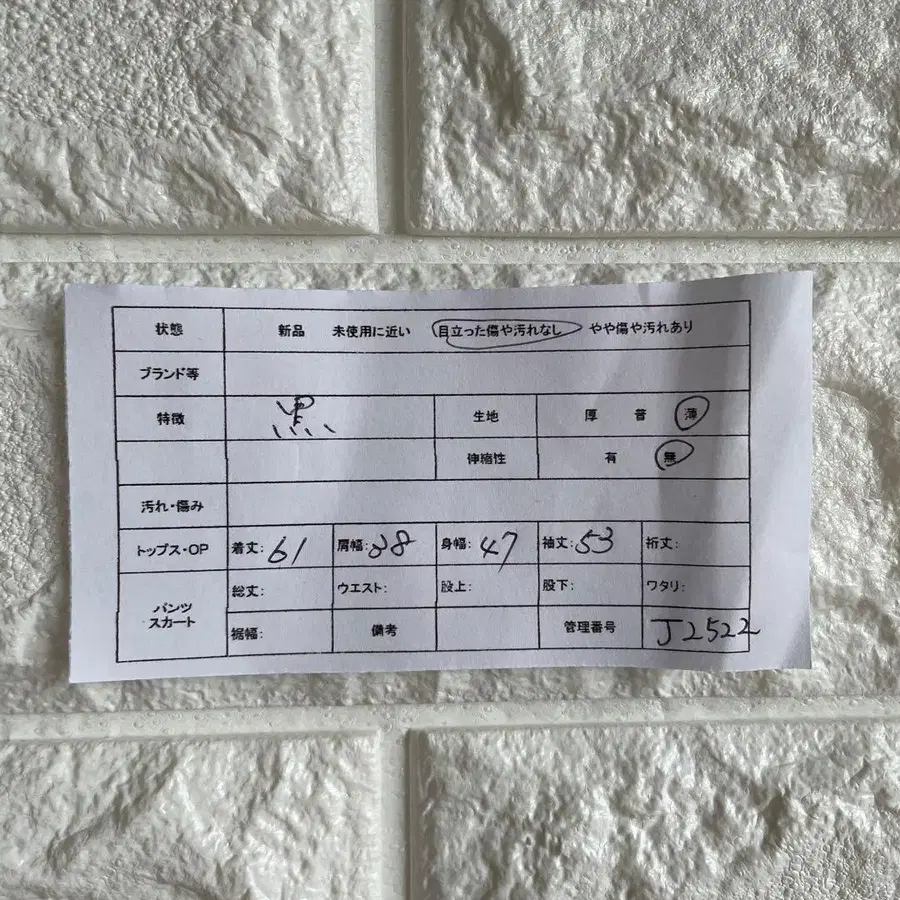 状態 新品 未使用に近い 目立った傷や汚れなし やや傷や汚れあり
ブランド等
特徴 黒 生地 厚 普 薄
伸縮性 有 無
汚れ・傷み
トップス・OP 着丈: 61 肩幅: 38 身幅: 47 袖丈: 53 裄丈:
パンツ スカート 総丈: ウエスト: 股上: 股下: ワタリ:
裾幅: 備考 管理番号 J2522